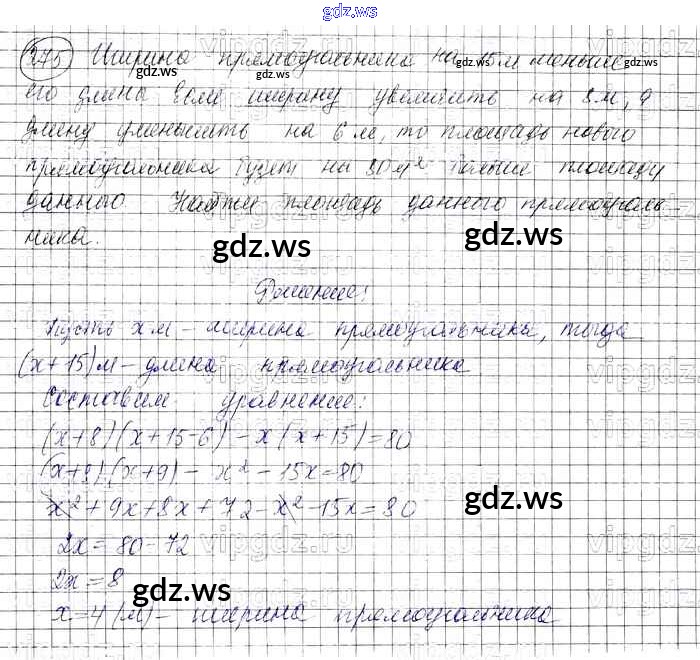 gdz.ws
375 Ширина прямоугольника на 15 м меньше
его длины Если ширину увеличить на 8 м, а
длину уменьшить на 6 м, то площадь нового
прямоугольника будет на 80 м² больше площади
данного. Найти площадь данного прямоуголь-
ника.
gdz.ws gdz.ws
Решение:
Пусть x м - ширина прямоугольника, тогда
(x+15) м - длина прямоугольника
Составим уравнение:
(x+8)(x+15-6) - x(x+15)=80
(x+8)(x+9) - x² - 15x=80
x² + 9x + 8x + 72 - x² - 15x = 80
gdz.ws
2x = 80-72
2x = 8
gdz.ws
x = 4 (м) - ширина прямоугольника